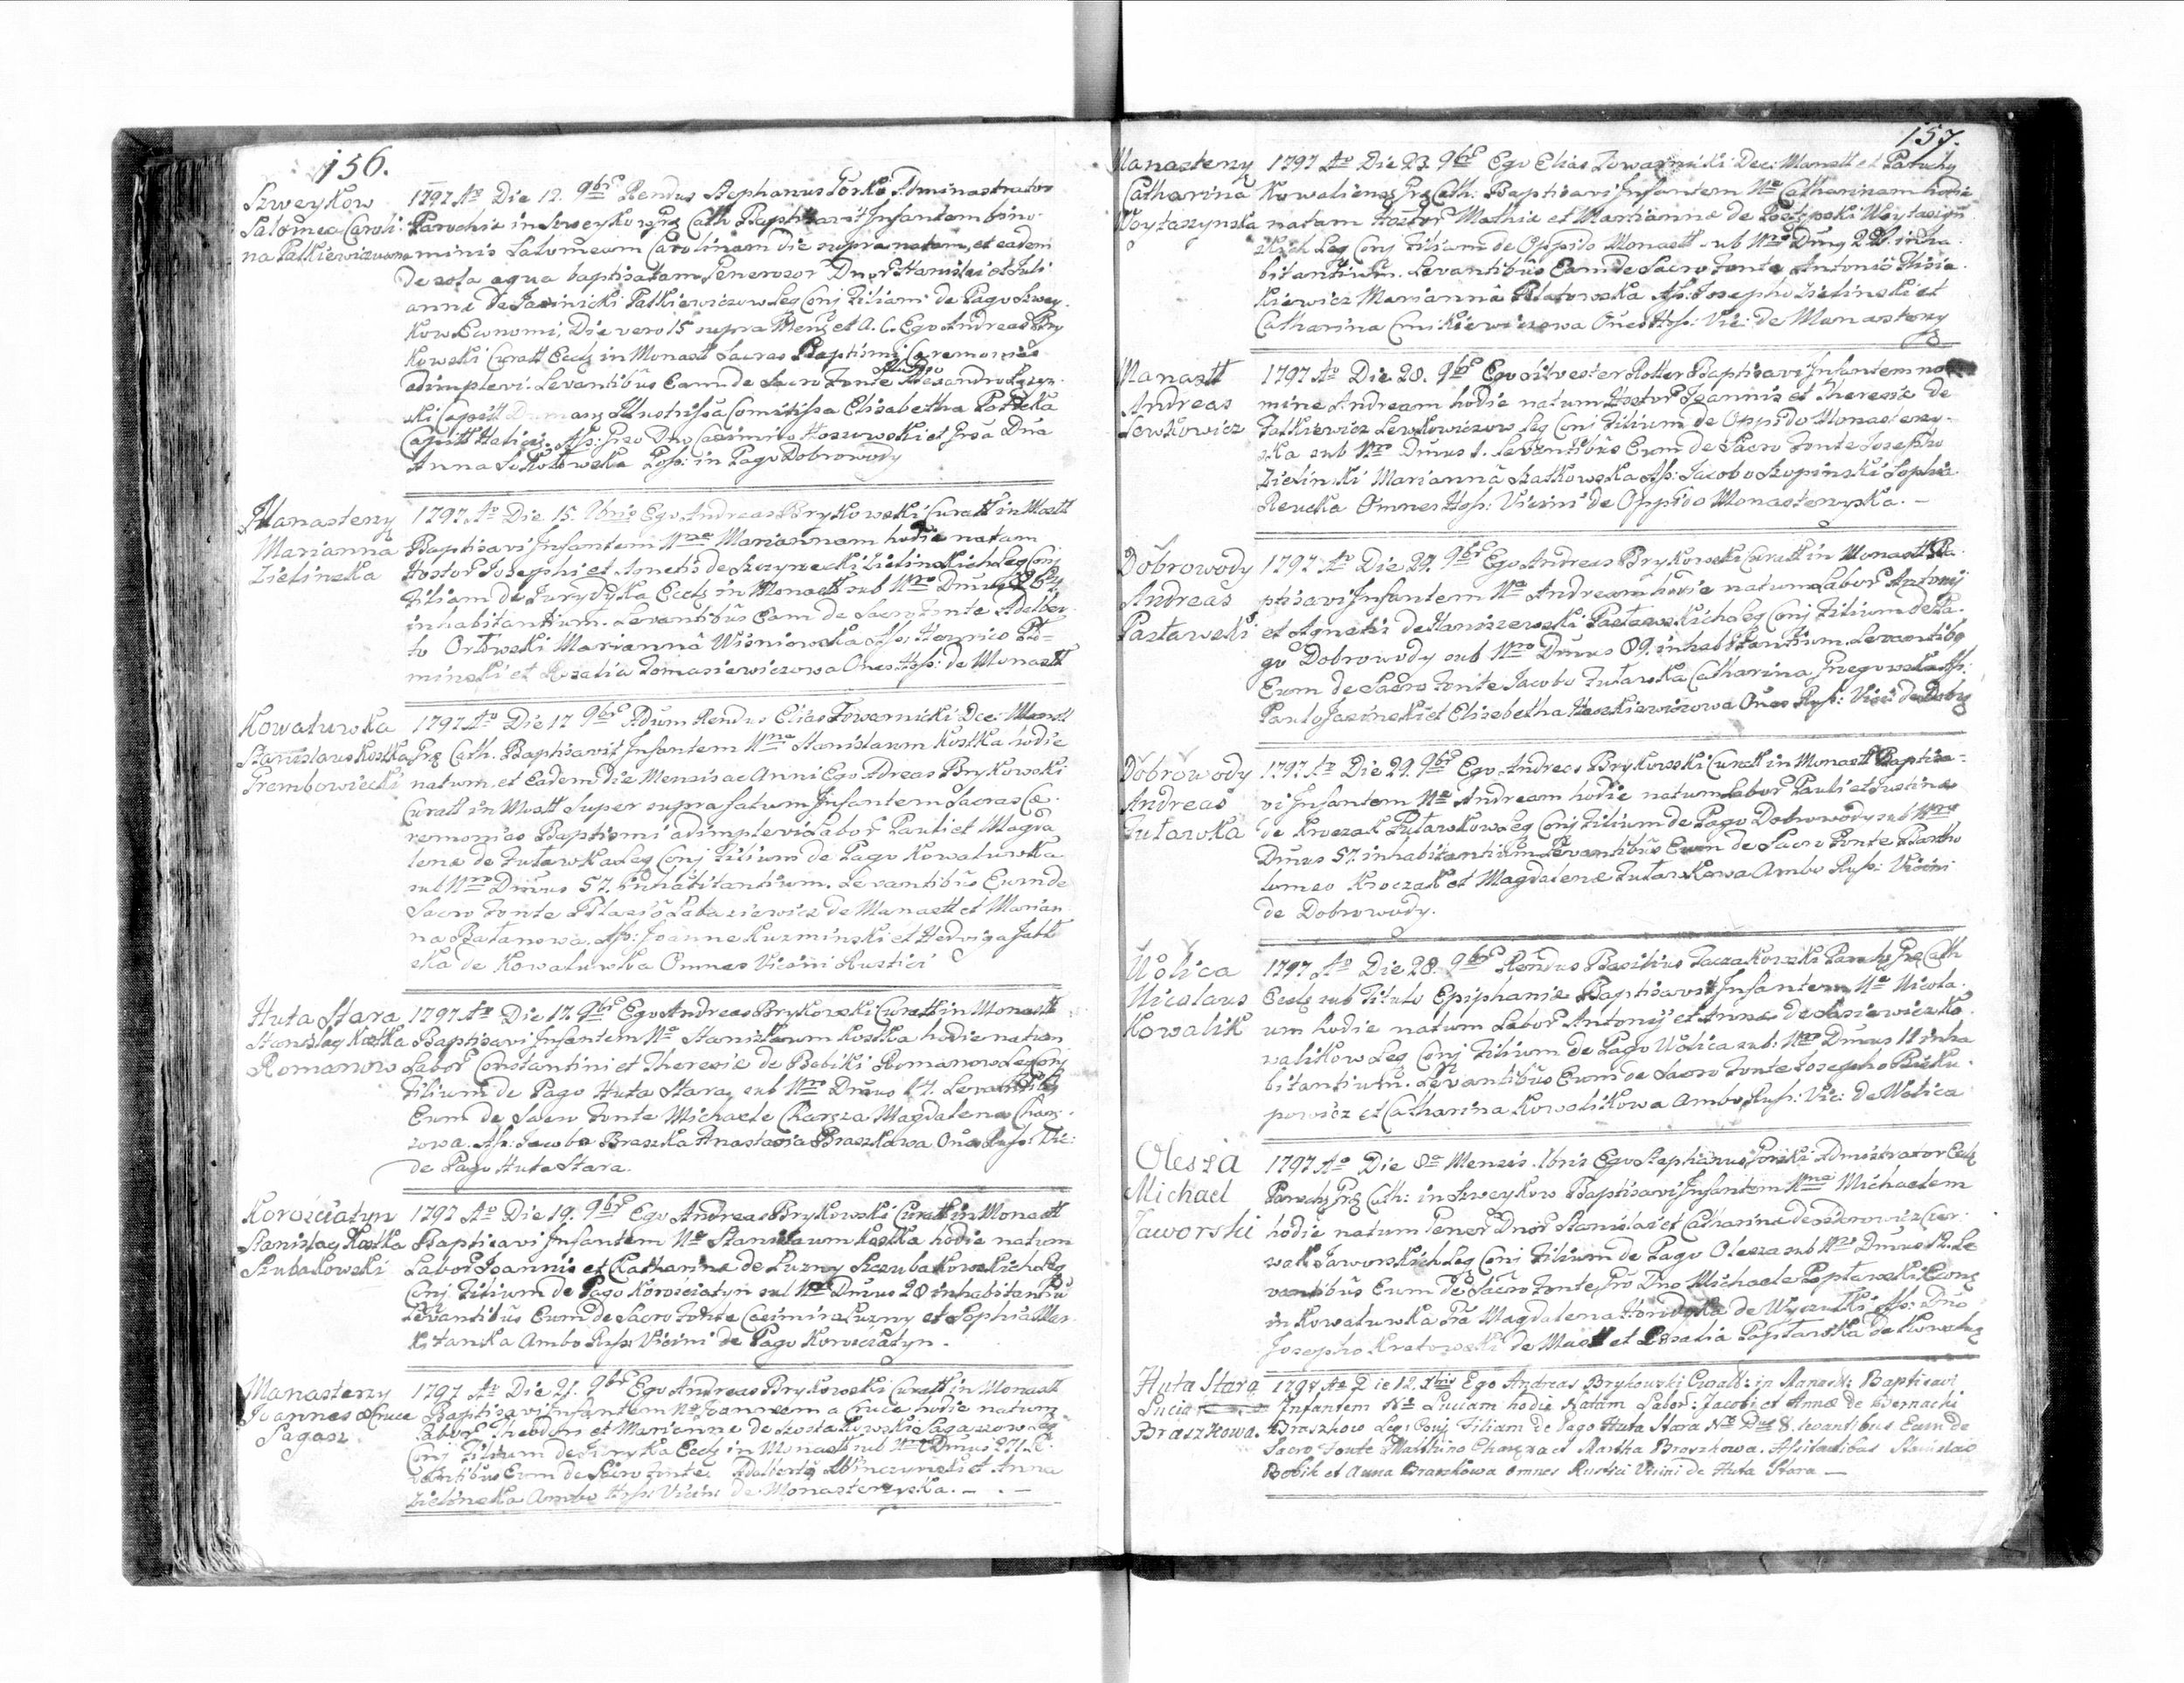 156.
Szweykow
Salomea Caroli-
na Patkiewiczuwna
1797 Ao Die 12. 9bris Rendus Stephanus Torski Administrator
Parochiæ in Szweykow Græ Cath Baptisavit Infantem bino-
minis Salomeam Carolinam die supra natam, et eadem
de sola aqua baptisatam, Generosor Dnor Stanislai et Juli
annæ de Jasinicki Patkiewiczow Leg Conj Filiam de Pago Szwey-
kow Economi, Die vero 15 supra Mens et A. C. Ego Andreas Bry
kowski Curatt Eccls in Monast Sacras Baptismi Caremonias
adimplevi. Levantibus Eam de Sacro Fonte
Illustrissa Comitissa Elisabetha Potocka
Capitt Halicz. Ass: Gnso Dno Casimiro Hoszowski et Gnsa Dna
Anna Sokołowska Poss: in Pago Dobrowody
Manasterzy
Marianna
Zielinska
1797. Ao Die 15. 9bris Ego Andreas Brykowski Curatt in Mastt
Baptisavi Infantem Nne Mariannam hodie natam
Hostor Josephi et Agnetis de Szczyrecki Zielinskich Leg Conj
Filiam de Jurydyka Eccls in Monastt sub Nro Dmus
inhabitantium. Levantibus Eam de Sacro Fonte Adelber-
to Orłowski Marianna Wisniowska Ass: Hennico
minski et Rozalia Tomasiewiczowa Ones Hosp: de Monastt
Kowaluwka
Stanislaus Kostka
Trembowiecki
1797 Ao Die 17 9bris Adum Rendus Elias Towarnicki Dec: Monst
Græ Cath. Baptisavit Infantem Nne Stanislaum Kostka hodie
natum, et Eadem die Mensis ac Anni Ego Adreas Brykowski
Curatt in Mostt Super supra fatum Infantem Sacras Cæ-
remonias Baptismi adimplevi Labor Pauli et Magda
lenæ de Futawka Leg Conj Filium de Pago Kowaluwka
sub Nro Dmus 57. inhabitantium. Levantibus Eum de
Sacro Fonte Błazio Łabaziewicz de Manastt et Marian-
na Bałanowa. Ass: Joanne Kuzminski et Hedviga Jabł
ska de Kowaluwka Omnes Vicini Rustici
Huta Stara
Stanislaus Kostka
Romanow
1797 Ao Die 17. 9bris Ego Andreas Brykowski Curatt in Monastt
Baptisavi Infantem Ne Stanislaum Kostka hodie natum
Labor Constantini et Theresiæ de Bobiki Romanow Leg Conj
Filium de Pago Huta Stara, sub Nro Dmus 17. Levantibus
Eum de Sacro Fonte Michaele Charęza Magdalena Charę-
zowa. Ass: Jacobo Braszka Anastasia Braszkowa Ones Rust: Vic:
de Pago Huta Stara.
Korosciatyn
Stanislaus Kostka
Szubakowski
1797 Ao Die 19. 9bris Ego Andreas Brykowski Curatt in Monastt
Baptisavi Infantem Ne Stanislaum Kostka hodie natum
Labor Joannis et Catharinæ de Luzny Szczubakowskich Leg
Conj Filium de Pago Korosciatyn sub Nro Dmus 28 inhabitantiu
Levantibus Eum de Sacro Fonte Casimiro Luzny et Sophia
Ambo Rust: Vicini de Pago Korosciatyn.
Manasterzy
Joannes a Cruce
Sagasz
1797 Ao Die 21. 9bris Ego Andreas Brykowski Curatt in Monastt
Baptisavi Infantem Ne Joannem a Cruce hodie natum
Labor Theodori et Mariennæ de Szostakowski Sagaszow Leg
Conj Filium de Jurydyka Eccls in Monastt sub Nro Dmus 271. Le-
vantibus Eum de Sacro Fonte. Adalberto Winczynski et Anna
Zielinska Ambo Hosp: Vicini de Monasterzyska.
157.
Manasterzy
Catharina
Woytaszynska
1797 Ao Die 23 9bris Ego Elias Towarnicki Dec: Monastt et Paruchy
Kowaliens Græ Cath: Baptisavi Infantem Ne Catharinam hodie
natam Hostor Mathiæ et Mariannæ de Woytaszyn
skich Leg Conj Filiam de Oppido Monastt sub Nro Dmus 28. inha-
bitantium. Levantibus Eam de Sacro Fonte Antonio Misia-
kiewicz Marianna Ass: Josepho Zielinski et
Catharina Ones Hosp: Vic: de Monasterzy
Manastt
Andreas
Lewkowicz
1797 Ao Die 28. 9bris Ego Silvester Rotter Baptisavi Infantem no
mine Andream hodie natum Hostor Joannis et Theresiæ de
Falkiewicz Lewkowiczow Leg Conj Filium de Oppido Monasterzy-
ska sub Nro Dmus 1. Levantibus Eum de Sacro Fonte Josepho
Zielinski Marianna Szatkowska Ass: Jacobo Szopinski Sophia
Revcka Omnes Hosp: Vicini de Oppido Monasterzyska. —
Dobrowody
Andreas
Pasławski
1797 Ao Die 29. 9bris Ego Andreas Brykowski Curatt in Monastt Ba-
ptisavi Infantem Ne Andream hodie natum Labor Antonij
et Agnetis de Staniszewski Pasławskich Leg Conj Filium de Pa-
go Dobrowody sub Nro Dmus 89. inhabitantium. Levantibus
Eum de Sacro Fonte Jacobo Futawka Catharina Gregowska Ass:
Paulo Jasinski et Elisabetha Ones Rust: Vici de Dobrs
Dobrowody
Andreas
Futawka
1797. Ao Die 29. 9bris Ego Andreas Brykowski Curatt in Monastt Baptisa-
vi Infantem Ne Andream hodie natum Labor Pauli et Justinæ
de Kroczak Futawkow Leg Conj Filium de Pago Dobrowody sub Nro
Dmus 57. inhabitantium. Levantibus Eum de Sacro Fonte Bartho
lomeo Kroczak et Magdalenæ Futawkowa Ambo Rust: Vicini
de Dobrowody.
Wolica
Nicolaus
Kowalik
1797 Ao Die 28. 9bris Rendus Basilius Taczakowski Paruchs Græ Cath
Eccls sub Titulo Epiphaniæ Baptisavit Infantem Ne Nicola-
um hodie natum Labor Antonij et Annæ de Sasiewicz Ko-
walikow Leg Conj Filium de Pago Wolica sub: Nro Dmus 11 inha
bitantium. Levantibus Eum de Sacro Fonte Josepho
powicz et Catharina Kowalikowa Ambo Rust: Vic: de Wolica
Olesza
Michael
Jaworski
1797 Ao Die 8a Mensis Xbris Ego Stephanus Torski Admnistrator Eccls
Paruchs Græ Cath: in Szweykow Baptisavi Infantem Nne Michaelem
hodie natum Gener Dnor Stanislai et Catharinæ de Czer-
wak Jaworskich Leg Conj Filium de Pago Olesza sub Nro Dmus 12. Le
vantibus Eum de Sacro Fonte, Gno Dno Michaele Popławski Econs
in Kowaluwka Gna Magdalena de Wyczułki Ass: Dno
Josepho Kratowski de Mastt et Rosalia Popławska de Kowalus
Huta Stara
Lucia
Braszkowa.
1797 Ao Die 12. Xbris Ego Andreas Brykowski Curatt: in Manast: Baptisavi
Infantem Ne Luciam hodie Natam Labor: Jacobi et Annæ de Bernacki
Braszkow Leg: Conj Filiam de Pago Huta Stara No Dus 8. levantibus Eam de
Sacro Fonte Matthæo Charęza et Martha Braszkowa. Assistentibus Stanislao
Bobik et Anna Braszkowa omnes Rustici Vicini de Huta Stara —